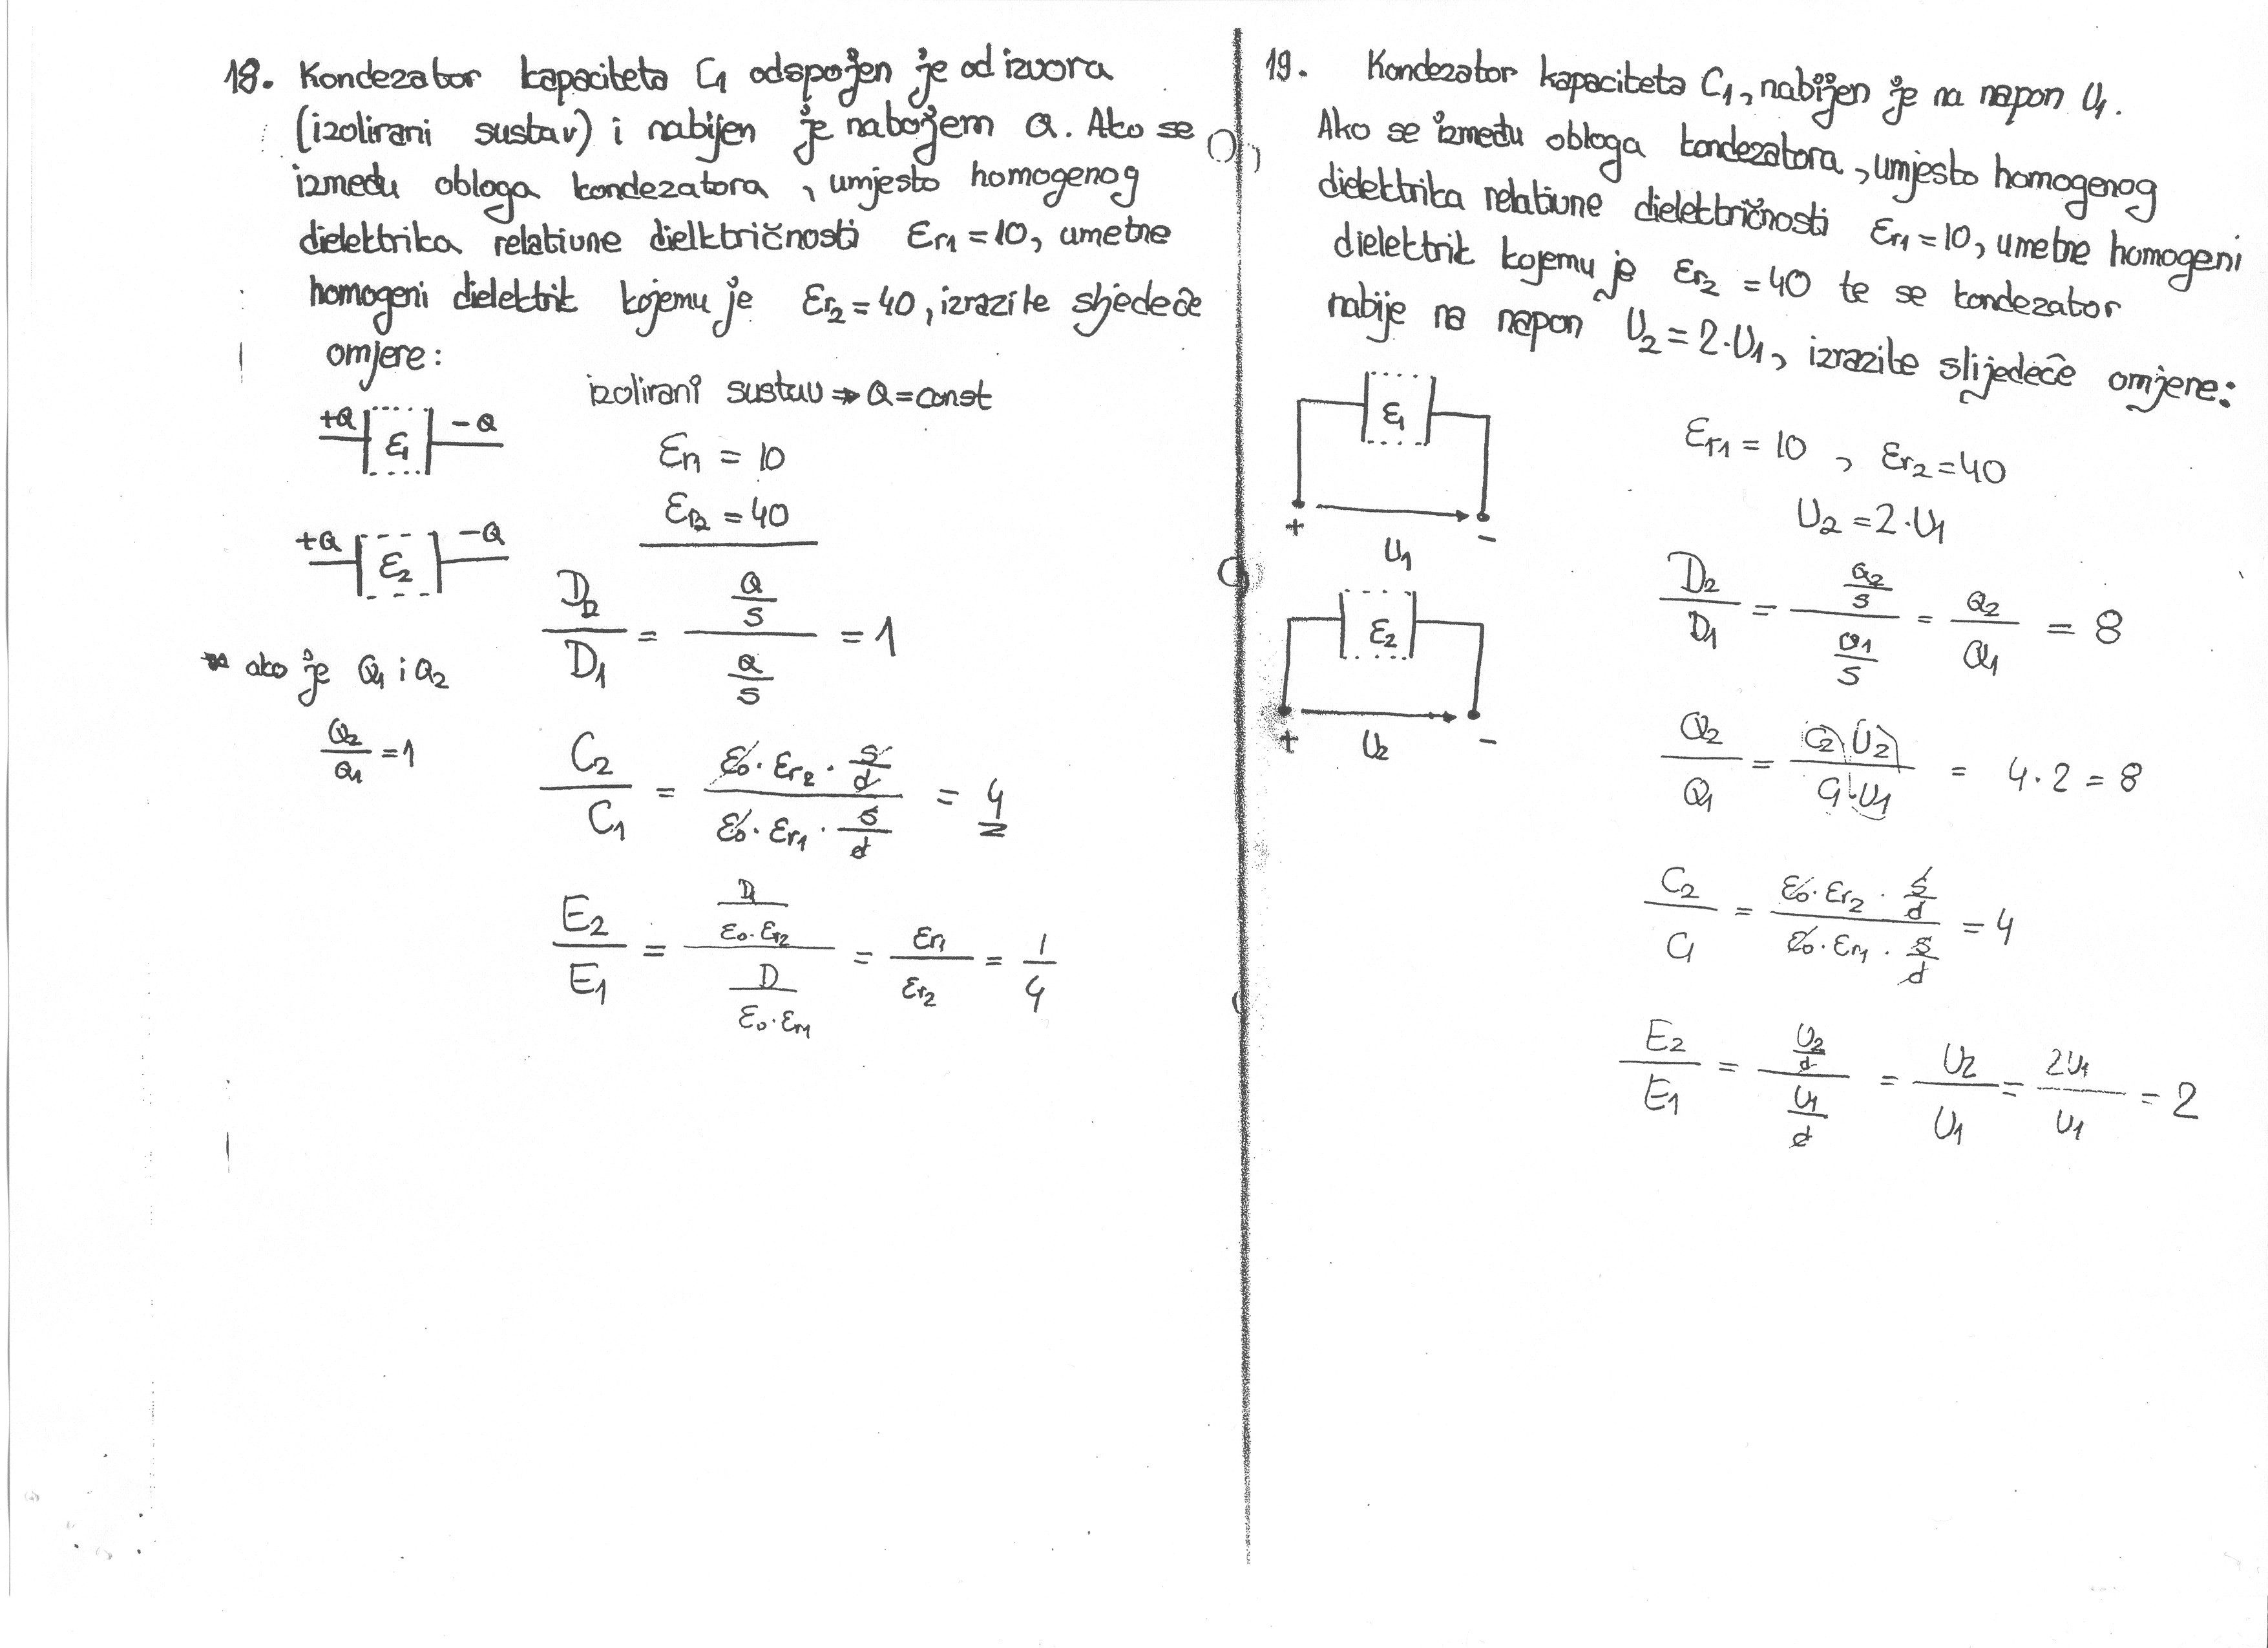 18. Kondezator kapaciteta C1 odspojen je od izvora
(izolirani sustav) i nabijen je nabojem Q. Ako se
između obloga kondezatora, umjesto homogenog
dielektrika relativne dielktričnosti Er1 = 10, umetne
homogeni dielektrik kojemu je Er2 = 40, izrazite sljedeće
omjere:
izolirani sustav ⇒ Q = const
+Q ε1 -Q
Er1 = 10
Er2 = 40
+Q ε2 -Q
D2/D1 = (Q/S)/(Q/S) = 1
ako je Q1 i Q2
Q2/Q1 = 1
C2/C1 = (ε0 · εr2 · S/d)/(ε0 · εr1 · S/d) = 4
E2/E1 = (D/(ε0 · εr2))/(D/(ε0 · εr1)) = εr1/εr2 = 1/4
19. Kondezator kapaciteta C1, nabijen je na napon U1.
Ako se između obloga kondezatora, umjesto homogenog
dielektrika relativne dielektričnosti Er1 = 10, umetne homogeni
dielektrik kojemu je Er2 = 40 te se kondezator
nabije na napon U2 = 2·U1, izrazite slijedeće omjere:
ε1
+ U1 -
Er1 = 10, Er2 = 40
U2 = 2·U1
ε2
+ U2 -
D2/D1 = (Q2/S)/(Q1/S) = Q2/Q1 = 8
Q2/Q1 = (C2 U2)/(C1·U1) = 4·2 = 8
C2/C1 = (ε0 · εr2 · S/d)/(ε0 · εr1 · S/d) = 4
E2/E1 = (U2/d)/(U1/d) = U2/U1 = 2U1/U1 = 2